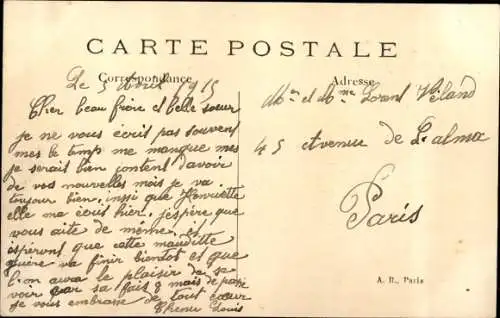 CARTE POSTALE
Correspondance
Adresse
Le 5 Août 1915
Cher beau frère et belle sœur
je ne vous écris pas souvent
mes le temp me manque mes
je serais bien content d'avoir
de vos nouvelles mais je va
toujour bien. inssi que Henriette
elle ma écris hier. j'espère que
vous aite de même. et
espéront que cette mauditte
guère va finir bientot et que
l'on aura le plaisir de se
voir car sa fais 9 mois de passé
je vous embrasse de tout cœur
Louis
Mr et Mme
45 Avenue de L'alma
Paris
A. R., Paris